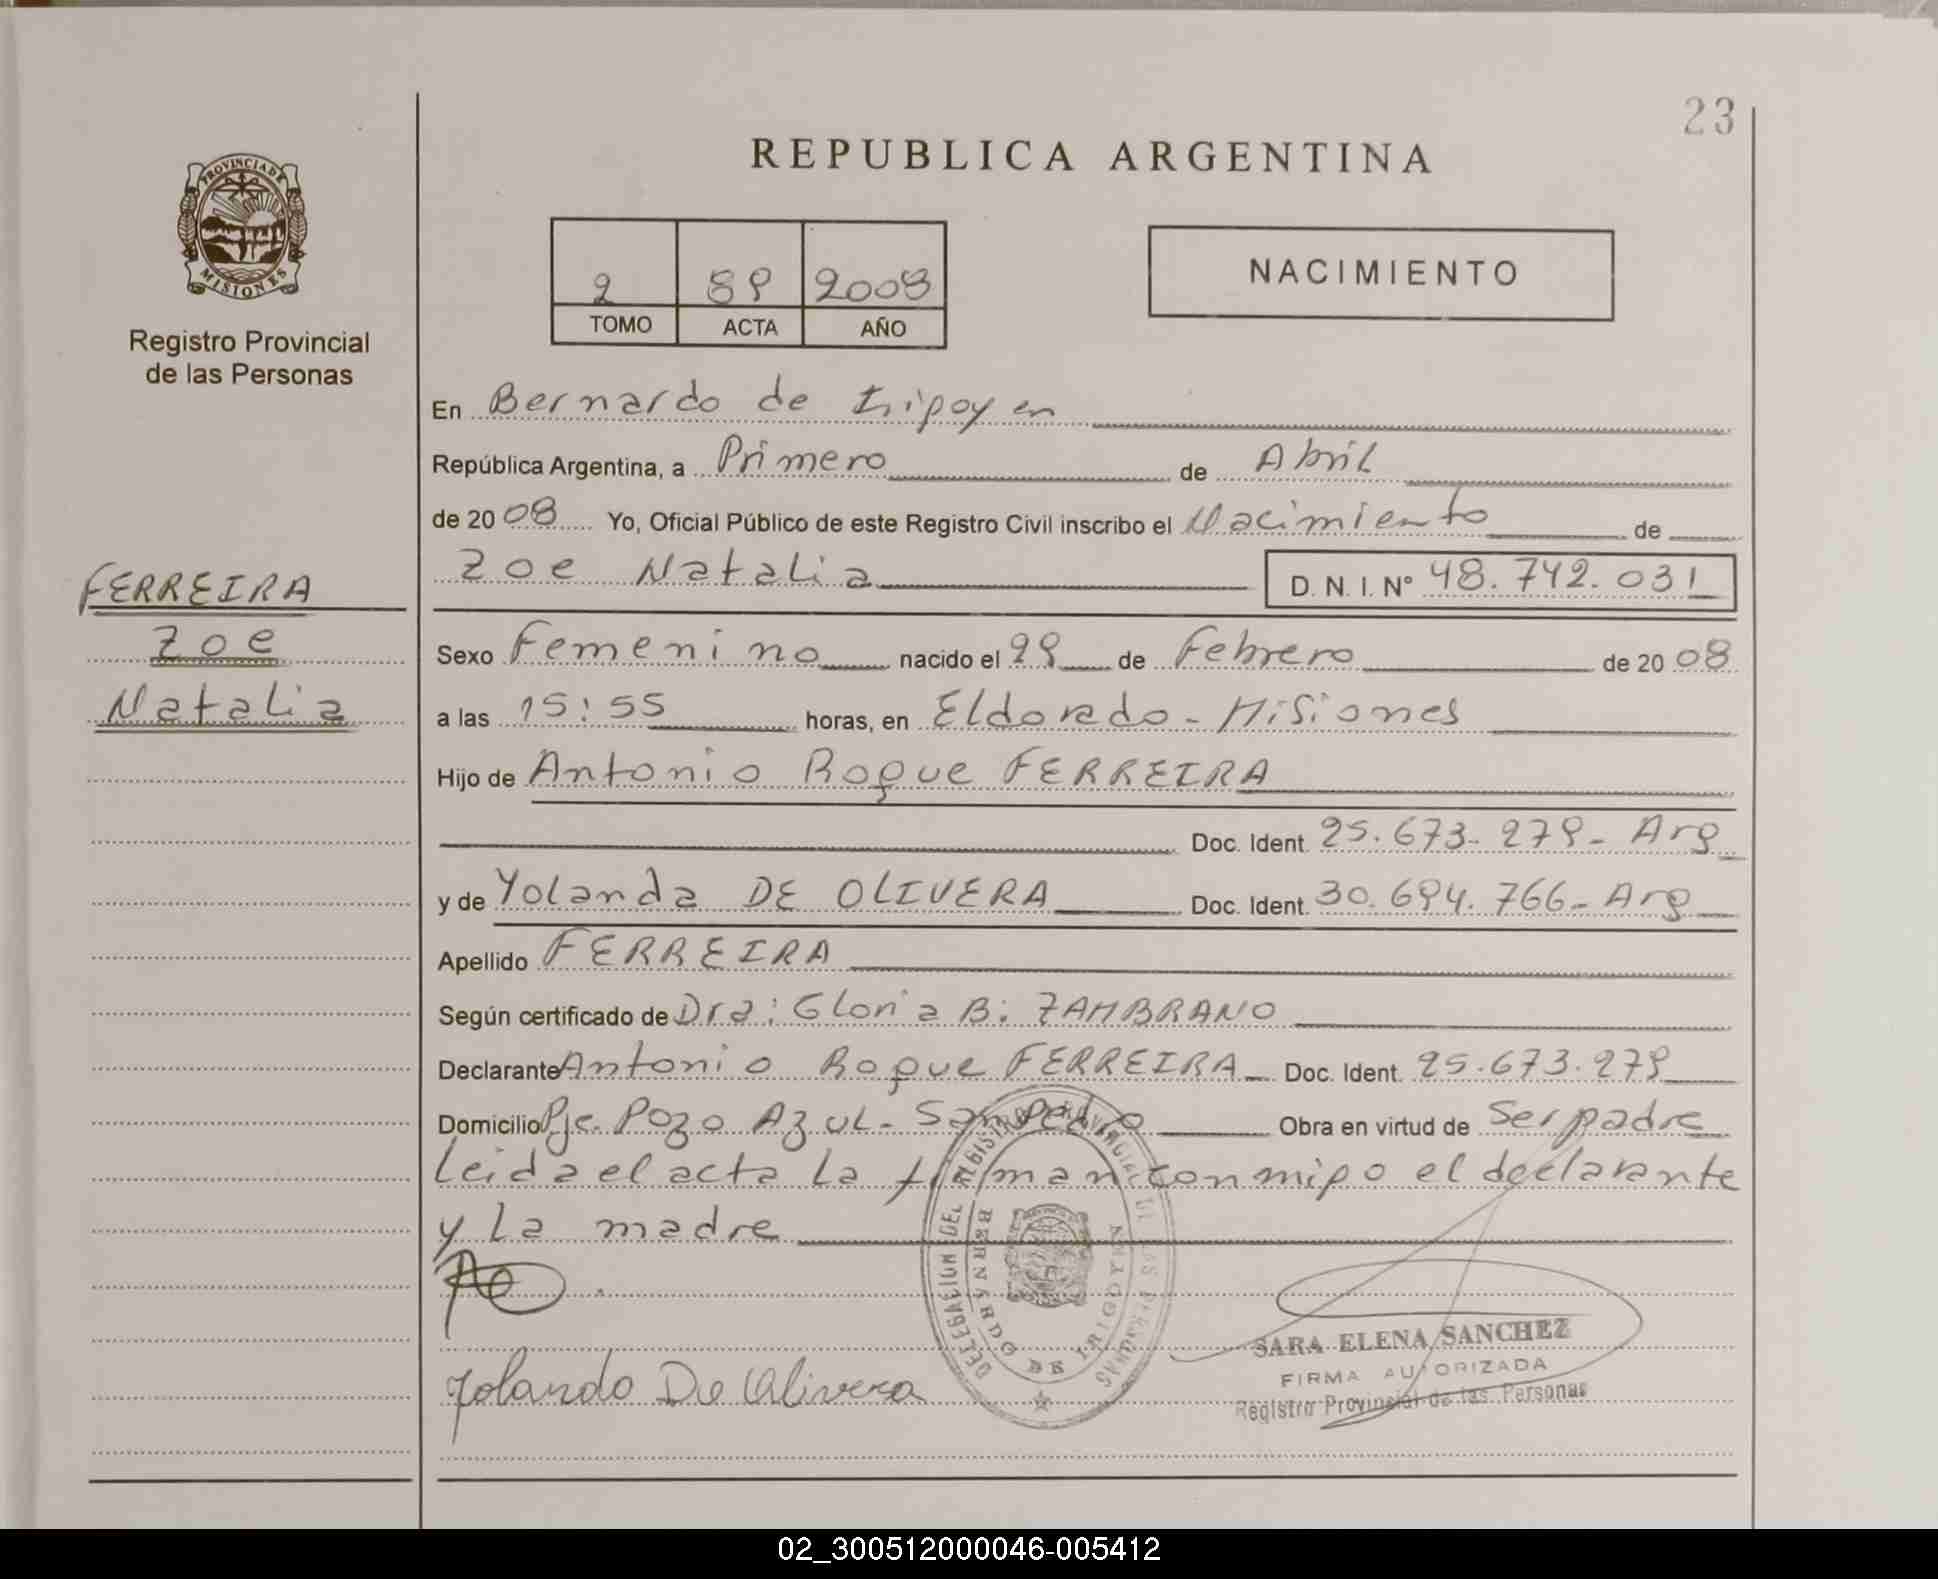 23
REPUBLICA ARGENTINA
PROVINCIA DE
MISIONES
Registro Provincial
de las Personas
2 89 2008
TOMO ACTA AÑO
NACIMIENTO
En Bernardo de Irigoyen
República Argentina, a Primero de Abril
de 2008 Yo, Oficial Público de este Registro Civil inscribo el Nacimiento de
Zoe Natalia D. N. I. Nº 48.742.031
FERREIRA
Zoe
Natalia
Sexo Femenino nacido el 29 de Febrero de 2008
a las 15:55 horas, en Eldorado - Misiones
Hijo de Antonio Roque FERREIRA
Doc. Ident. 25.673.279 - Arg
y de Yolanda DE OLIVERA Doc. Ident. 30.694.766 - Arg
Apellido FERREIRA
Según certificado de Dra: Gloria B. ZAMBRANO
Declarante Antonio Roque FERREIRA Doc. Ident. 25.673.279
Domicilio Pje. Pozo Azul - San Pedro Obra en virtud de Ser padre
Leida el acta la firman conmigo el declarante
y la madre
DELEGACION DEL REGISTRO PROVINCIAL DE LAS PERSONAS
BERNARDO DE IRIGOYEN
Yolando De Olivera
SARA ELENA SANCHEZ
FIRMA AUTORIZADA
Registro Provincial de las Personas
02_300512000046-005412